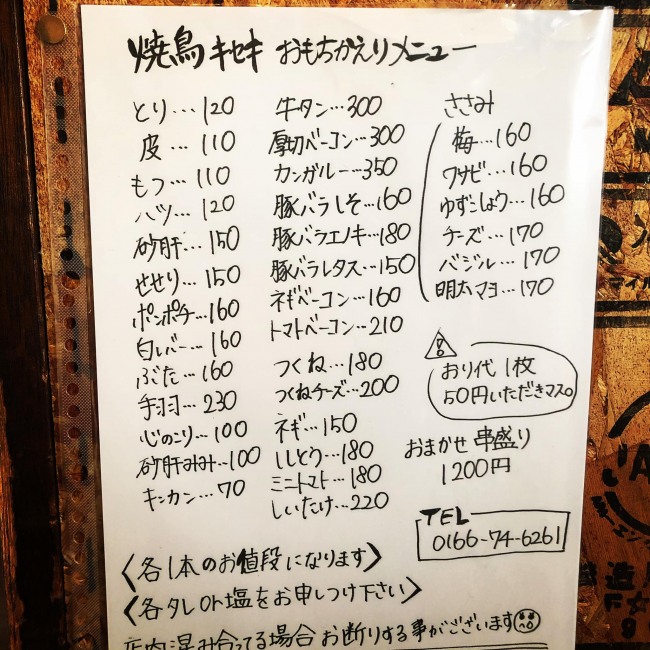 焼鳥 キセキ おもちかえりメニュー
とり…120
皮…110
もつ…110
ハツ…120
砂肝…150
せせり…150
ポンポチ…160
白レバー…160
ぶた…160
手羽…230
心のこり…100
砂肝みみ…100
キンカン…70
牛タン…300
厚切ベーコン…300
カンガルー…350
豚バラしそ…160
豚バラエノキ…180
豚バラレタス…150
ネギベーコン…160
トマトベーコン…210
つくね…180
つくねチーズ…200
ネギ…150
ししとう…180
ミニトマト…180
しいたけ…220
ささみ
梅…160
ワサビ…160
ゆずこしょう…160
チーズ…170
バジル…170
明太マヨ…170
おり代 1枚
50円いただきマス。
おまかせ 串盛り
1200円
TEL
0166-74-6261
〈各1本のお値段になります〉
〈各タレor塩をお申しつけ下さい〉
店内混み合ってる場合 お断りする事がございます